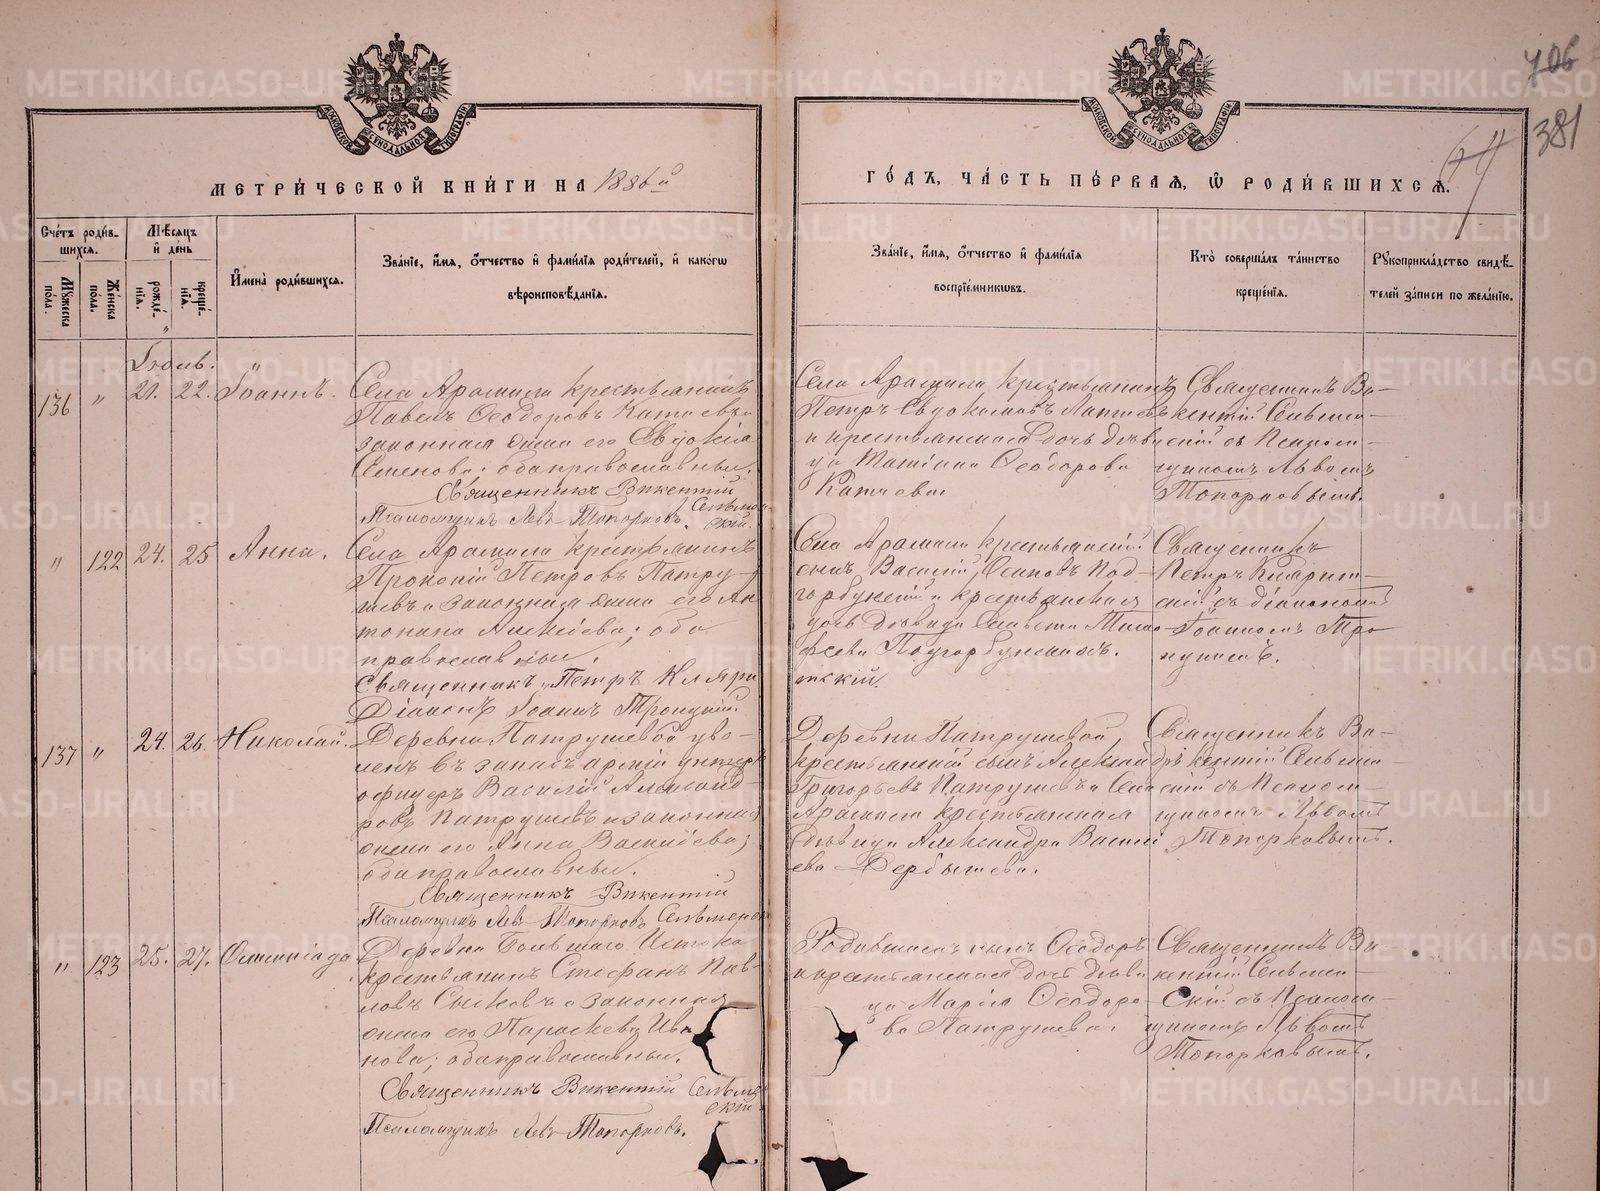 706
381
МОСКОВСКОЙ СѴНОДАЛЬНОЙ ТИПОГРАФІИ
МОСКОВСКОЙ СѴНОДАЛЬНОЙ ТИПОГРАФІИ
МЕТРИ́ЧЕСКОЙ КНИ́ГИ НА 1886й
ГО́ДЪ, ЧА́СТЬ ПЕ́РВАЯ, Ѡ РОДИ́ВШИХСЯ.
Сче́тъ роди́в-
шихся.
Мѣ́сяцъ
и҆ де́нь
Мꙋ́жеска по́ла.
Же́нска по́ла.
рожде́-
нїя.
креще́-
нїя.
И҆мена̀ роди́вшихся.
Зва́нїе, и҆́мя, ѻ҆́тчество и҆ фами́лїя роди́телей, и҆ како́гѡ
вѣроисповѣ́данїя.
Зва́нїе, и҆́мя, ѻ҆́тчество и҆ фами́лїя
воспрїе́мникѡвъ.
Кто̀ соверша́лъ та́инство
креще́нїя.
Рꙋкоприкла́дство свидѣ́-
телей за́писи по жела́нїю.
Іюль.
136 " 21. 22. Іоаннъ.
Села Арамили крестьянинъ
Павелъ Ѳеодоровъ Катаевъ и
законная жена его Евдокія
Семенова; оба православные.
Священникъ Викентій
Псаломщикъ Левъ Топорковъ. Сельмен-
скій.
Села Арамили крестьянинъ
Петръ Евдокимовъ
и крестьянская дочь дѣви-
ца Татіана Ѳеодорова
Катаева
Священникъ Ви-
кентій Сельмен-
скій съ Псалом-
щикомъ Львомъ
Топорковымъ.
" 122 24. 25 Анна.
Села Арамили крестьянинъ
Прокопій Петровъ Патру-
шевъ и законная жена его Ан-
тонина Алексіева; оба
православные.
Священникъ Петръ Кляри
Діаконъ Іоаннъ Троицкій.
Села Арамили крестьянскій
сынъ Василій Осиповъ Под-
горбунскій и крестьянская
дочь дѣвица Елисавета Тимо-
феева Подгорбунскихъ.
тскій.
Священникъ
Петръ Клярит-
скій съ діакономъ
Іоанномъ Тро
ицкимъ.
137 " 24. 26. Николай.
Деревни Патрушевой уво-
ленъ въ запасъ арміи унтеръ
офицеръ Василій Александ-
ровъ Патрушевъ и законная
жена его Анна Васильева;
оба православные.
Священникъ Викентій
Псаломщикъ Левъ Топорковъ Сельменск
Деревни Патрушевой,
крестьянскій сынъ Александръ
Григорьевъ Патрушевъ и села
Арамили крестьянская
дѣвица Александра Василі
ева Дербышева.
Священникъ Ви-
кентій Сельмен-
скій съ Псалом-
щикомъ Львомъ
Топорковымъ.
" 123 25. 27. Олимпіада
Деревни Большаго Истока
крестьянинъ Стефанъ Пав-
ловъ и законная
жена его Параскева Ива
нова; оба православные.
Священникъ Викентій Сельмен
скій
Псаломщикъ Левъ Топорковъ.
сынъ Ѳеодоръ
и крестьянская дочь дѣви
ца Марія Ѳеодоро-
ва Патрушева.
Священникъ Ви-
кентій Сельмен-
скій съ Псалом-
щикомъ Львомъ
Топорковымъ.
METRIKI.GASO-URAL.RU